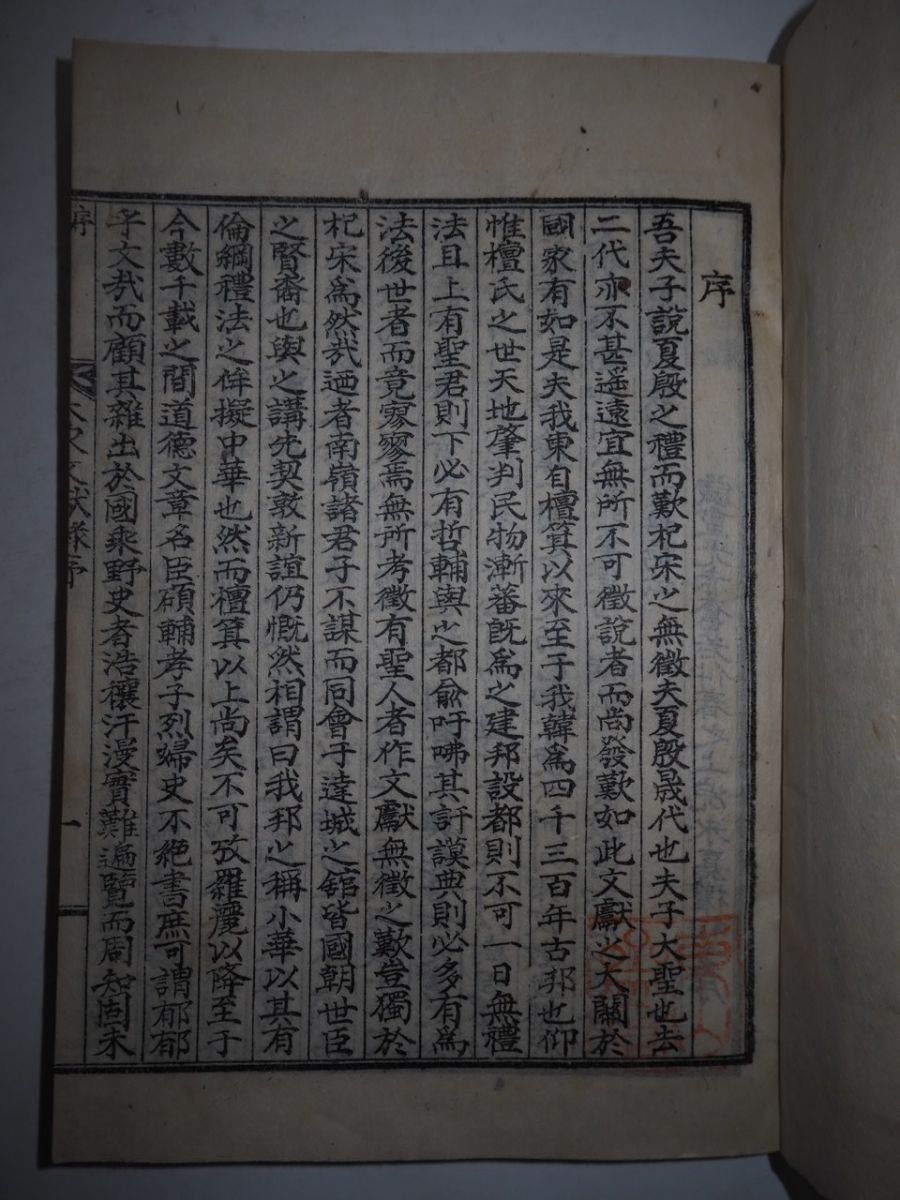 序
吾夫子說夏殷之禮而歎杞宋之無徵夫夏殷晟代也夫子大聖也去
二代亦不甚遥遠宜無所不可徵說者而尚發歎如此文獻之大關於
國家有如是夫我東自檀箕以來至于我韓爲四千三百年古邦也仰
惟檀氏之世天地肇判民物漸蕃旣爲之建邦設都則不可一日無禮
法且上有聖君則下必有哲輔與之都兪吁咈其訏謨典則必多有爲
法後世者而竟寥寥焉無所考徵有聖人者作文獻無徵之歎豈獨於
杞宋爲然㢤迺者南嶺諸君子不謀而同會于達城之舘皆國朝世臣
之賢裔也與之講先契敦新誼仍慨然相謂曰我邦之稱小華以其有
倫綱禮法之侔擬中華也然而檀箕以上尚矣不可攷羅麗以降至于
今數千載之間道德文章名臣碩輔孝子烈婦史不絶書庶可謂郁郁
乎文㢤而顧其雜出於國乘野史者浩穰汗漫實難遍覽而周知固未
序
文獻
序
一